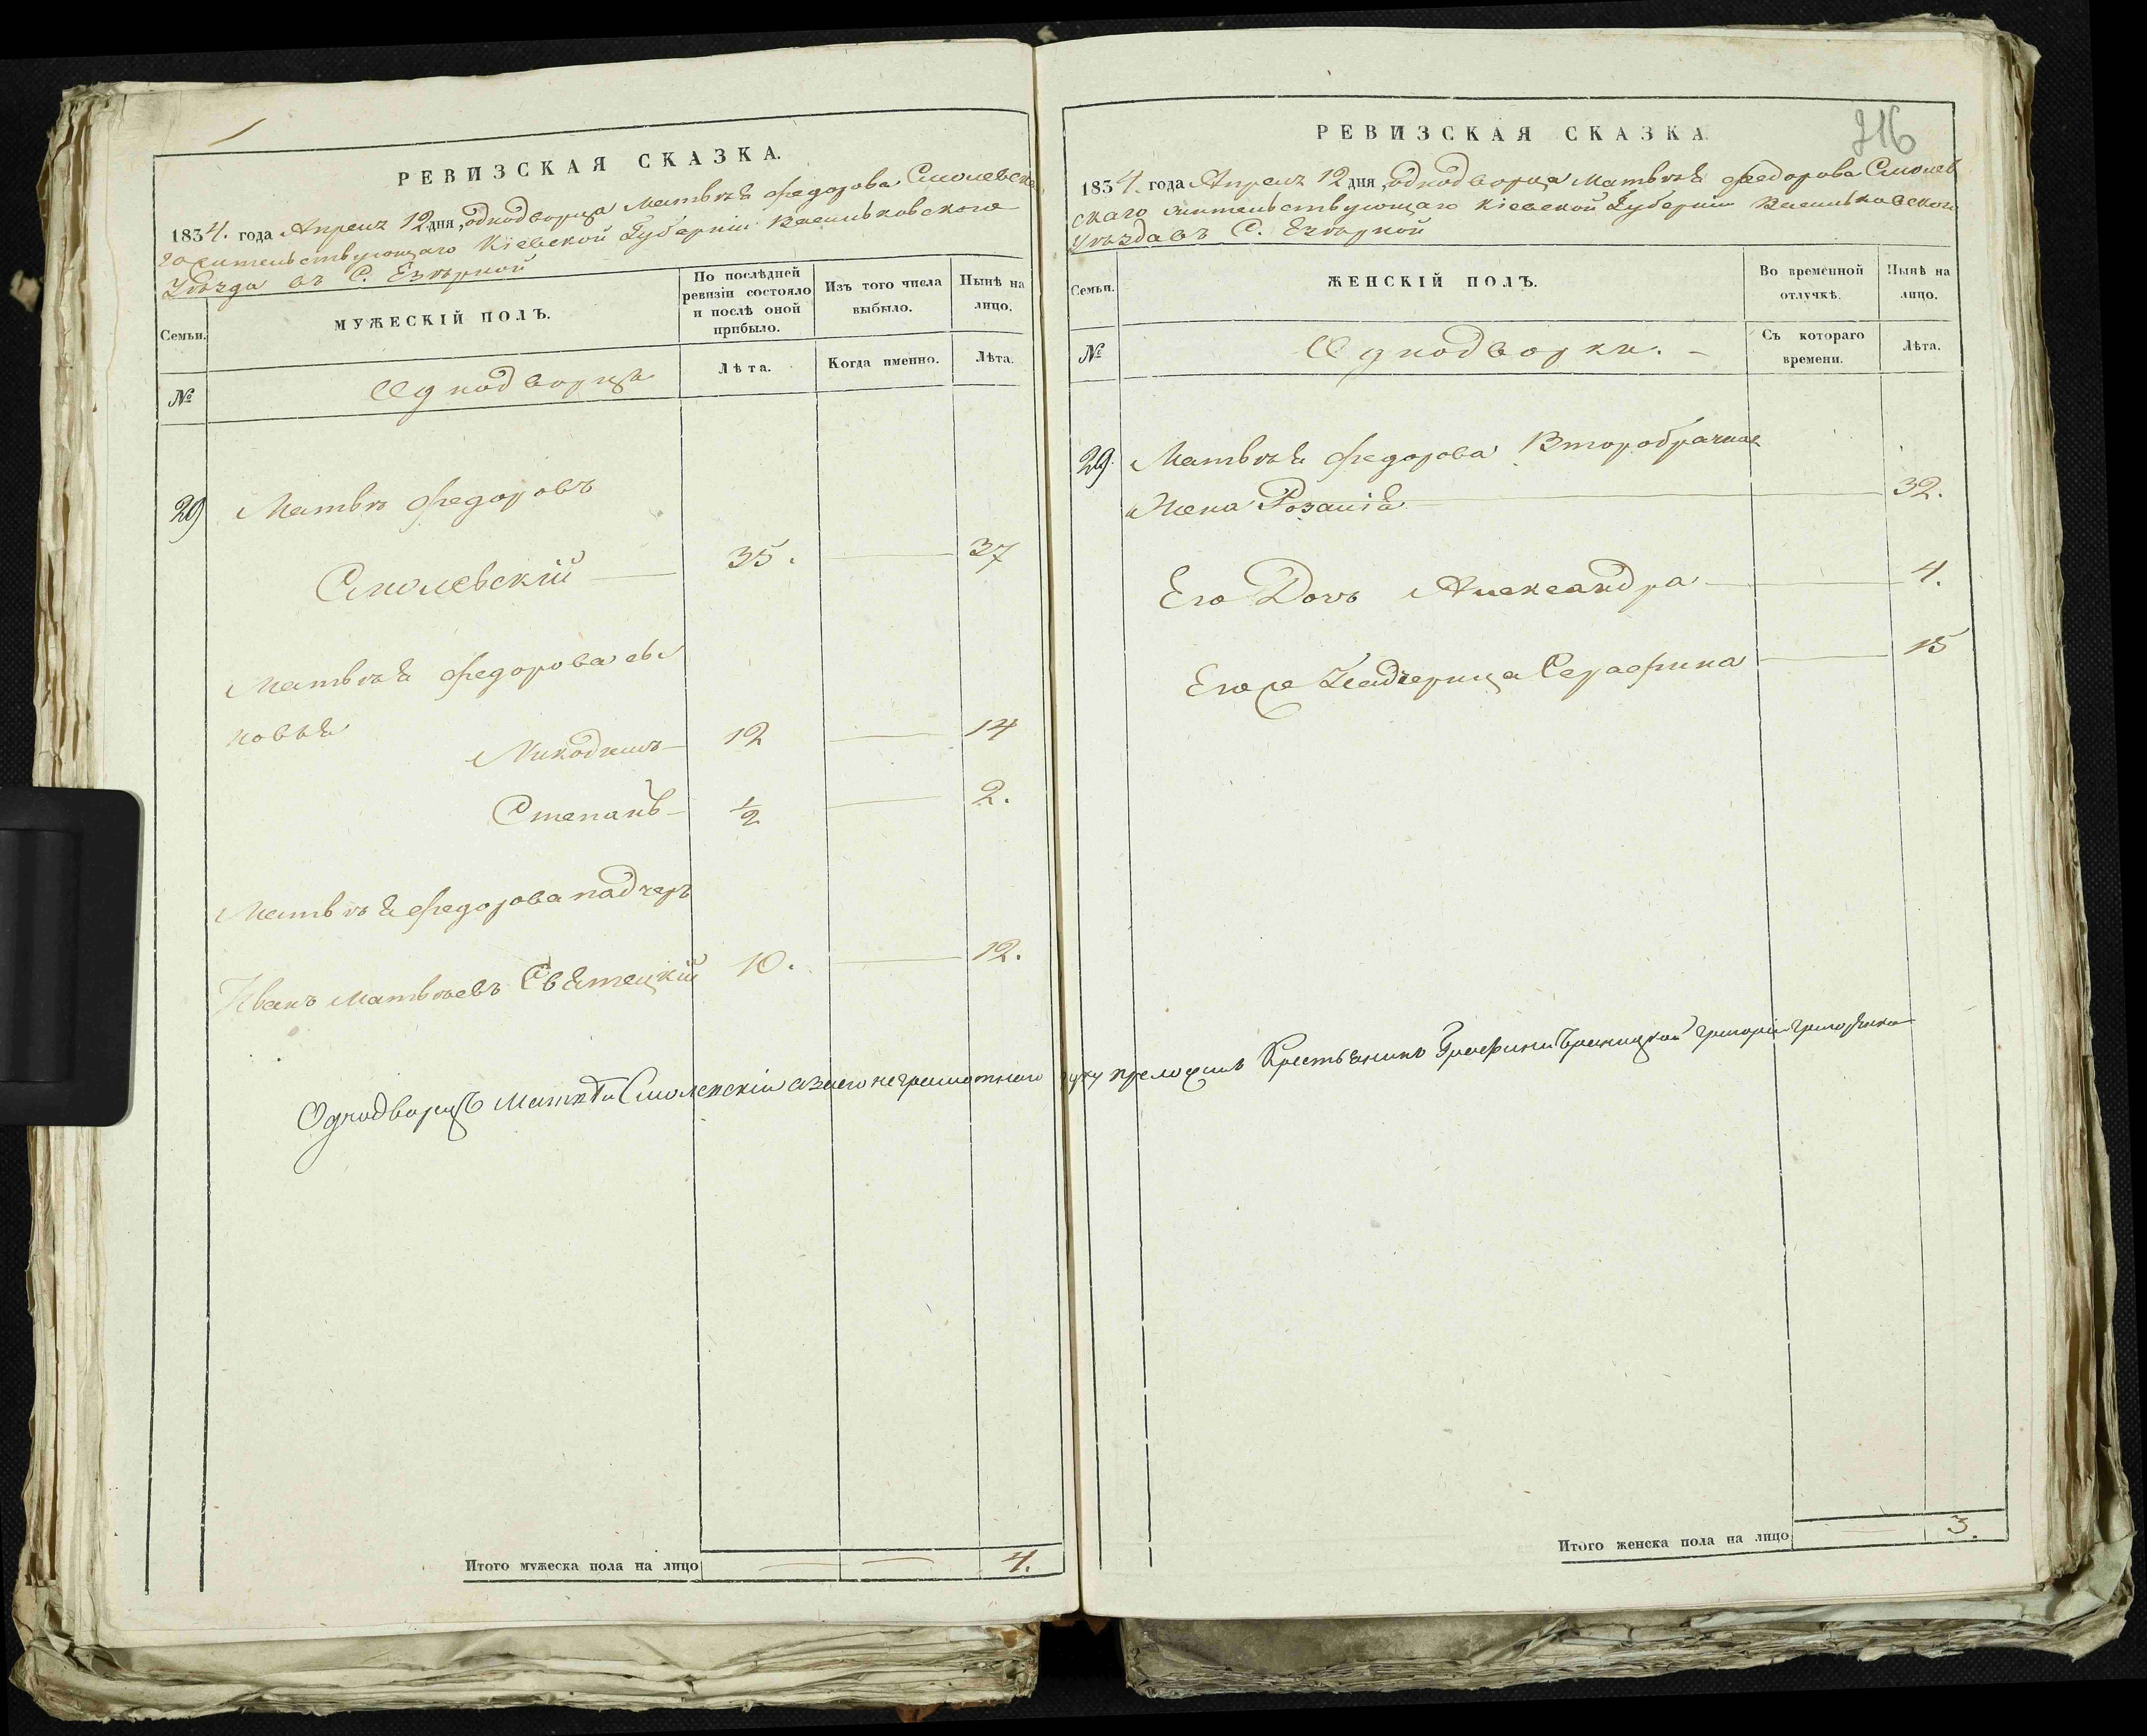 РЕВИЗСКАЯ СКАЗКА.
1834. года Апреля 12 дня, однодворца Матвѣя Федорова Смолевска
го жительствующаго Кіевской Губерніи Васильковского
Уѣзда въ С. Езѣрной
Семьи.
МУЖЕСКІЙ ПОЛЪ.
По послѣдней ревизіи состояло и послѣ оной прибыло.
Изъ того числа выбыло.
Нынѣ на лицо.
№
Однодворцы
Лѣта.
Когда именно.
Лѣта.
29 Матвѣй Федоровъ
Смолевскій 35. 37
Матвѣя Федорова сы
новья
Никодимъ 12 14
Степанъ ½ 2.
Матвѣя Федорова падчер
Иванъ Матвѣевъ Святецкій 10. 12.
Однодворецъ Матвѣй Смолевскій а за его неграмотнаго руку приложилъ Крестьянинъ Графини Браницкой Григорій
Итого мужеска пола на лицо 4.
216
РЕВИЗСКАЯ СКАЗКА
1834. года Апреля 12 дня, однодворца Матвѣя Федорова Смолев
скаго жительствующаго Кіевской Губерніи Васильковского
Уѣзда въ С. Езѣрной
Семьи.
ЖЕНСКІЙ ПОЛЪ.
Во временной отлучкѣ.
Нынѣ на лицо.
№
Однодворки.
Съ котораго времени.
Лѣта.
29. Матвѣя Федорова Второбрачная
Жена Розалія 32.
Его Дочь Александра 4.
Его же Падчерица Серафина 15
Итого женска пола на лицо 3.